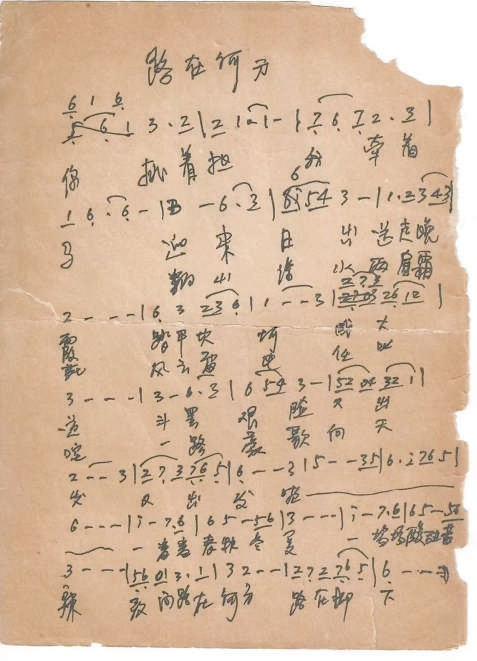 路在何方
6 1 6
5 6 1 3 · 2 | 2 1 · 1 - | 7 6 7 2 · 3 |
你 挑着担 我 牵着
1 6 · 6 - | 3 - 6 · 3 | 6 i 5 4 3 - | 1 · 2 3 4 3 |
马 迎来日出送走晚
翻山涉水两肩霜
2 - - - | 6 3 2 3 6 | 1 - - 3 |
霞 踏平坎坷成大
风云雷电任
3 - - - | 3 - 6 · 3 | 6 5 4 3 - |
道 斗罢艰险又出
一路豪歌向天
2 - - 3 | 2 7 3 7 6 5 | 6 - - 3 | 5 - - 3 5 | 6 · i 7 6 5 |
发 又出发 啦
6 - - - | i - 7 6 | 6 5 - 5 6 | 3 - - - | i - 7 6 | 6 5 - 5 6
一番番春秋冬夏 一场场酸甜苦
3 - - - | 5 6 0 1 3 · 1 | 3 2 - - | 2 7 2 7 6 5 | 6 - - -
辣 敢问路在何方 路在脚下